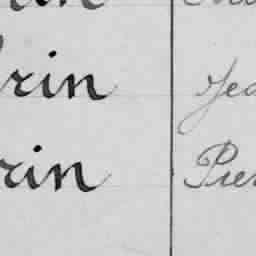 rin Jea
rin Pier